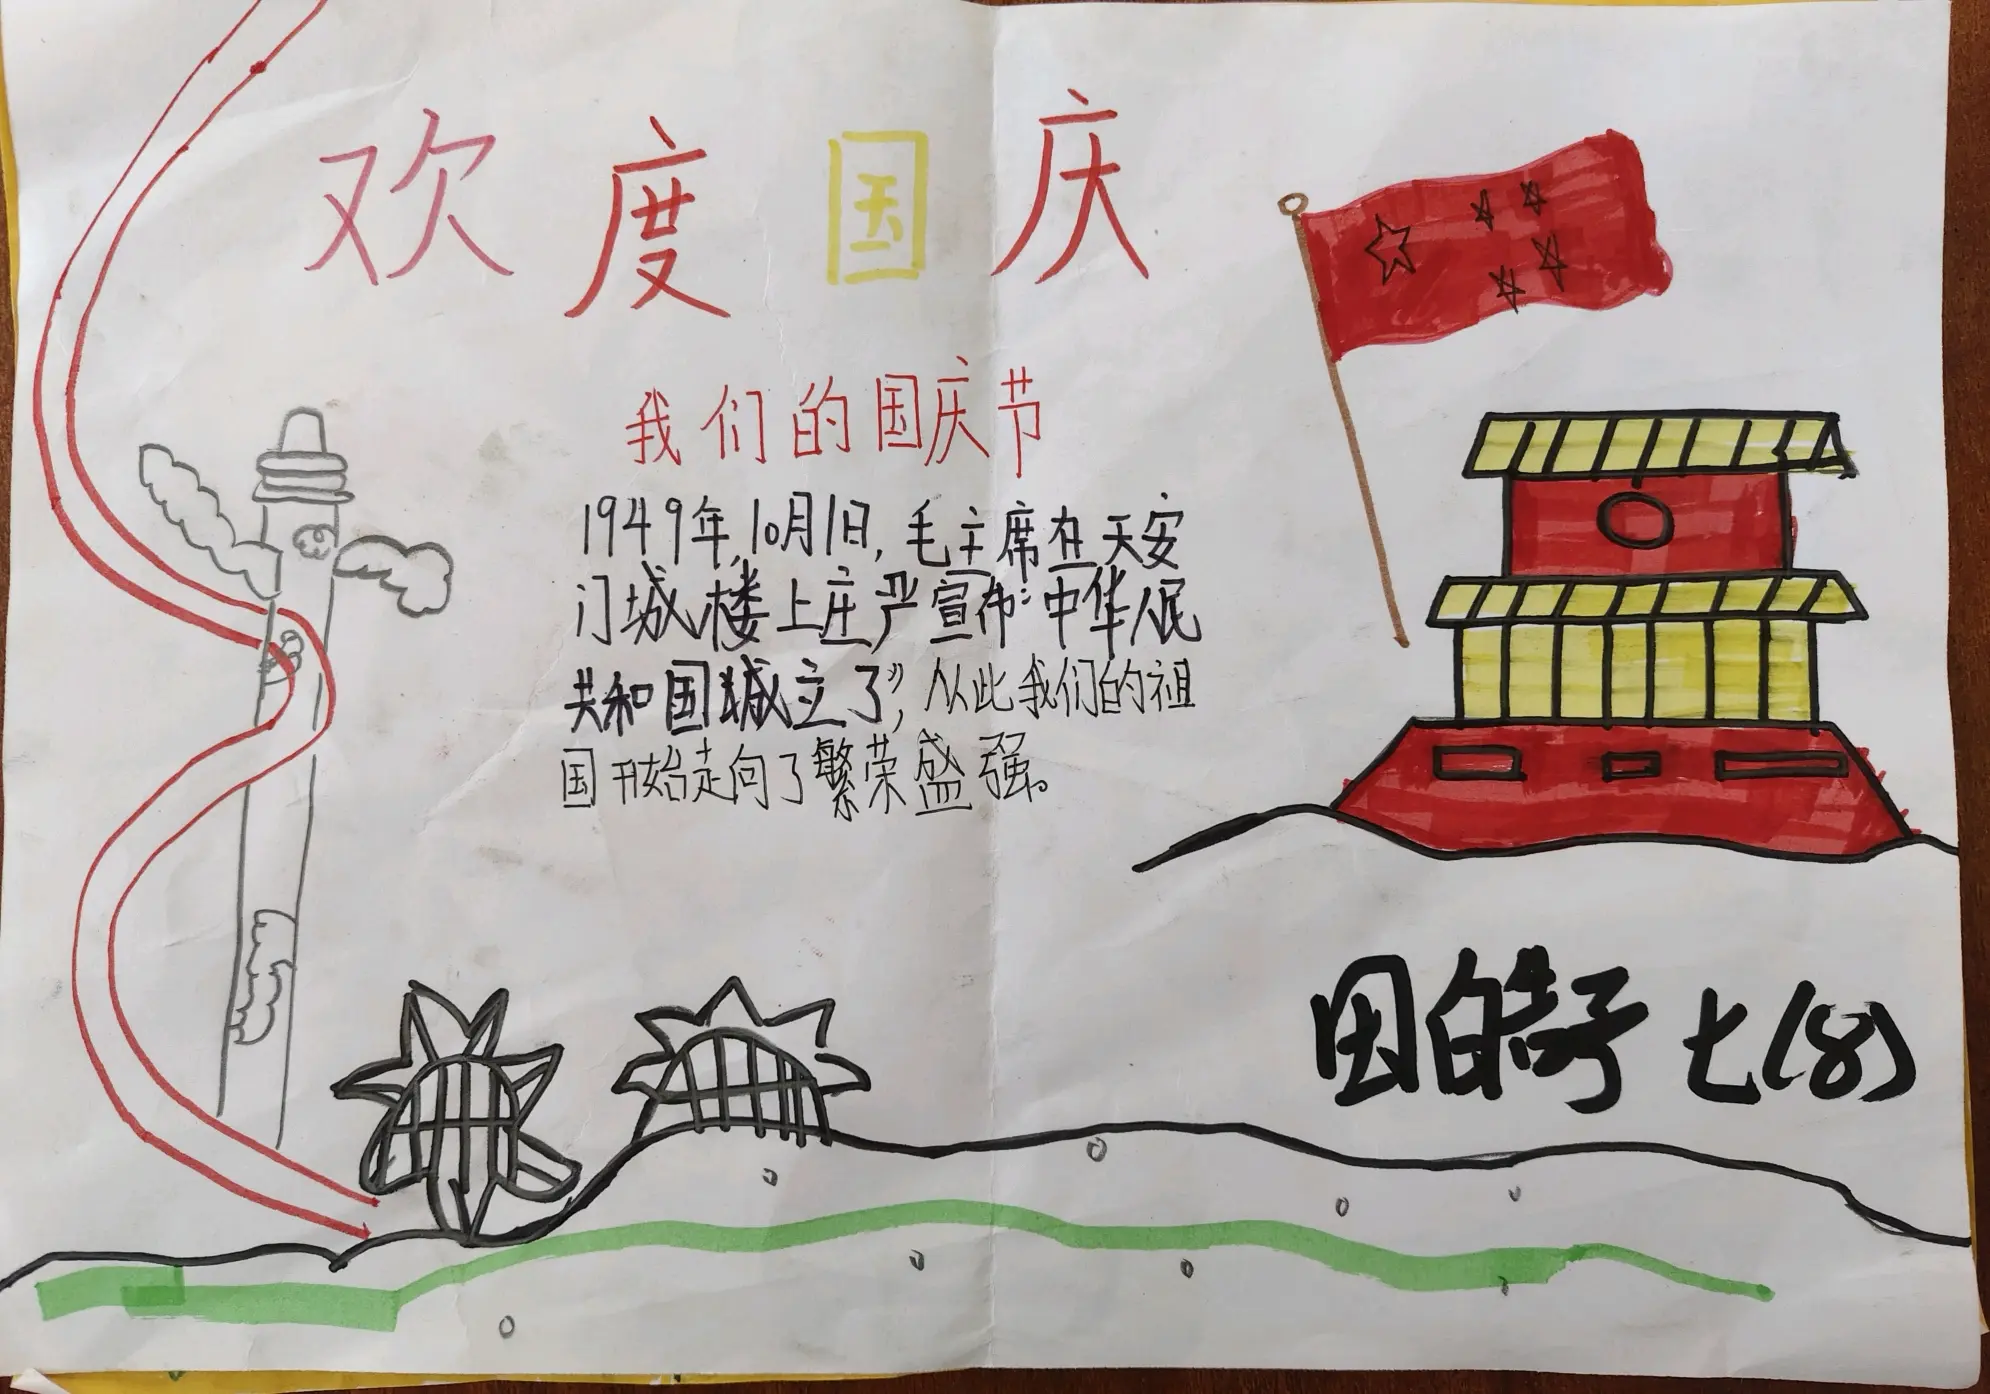 欢度国庆
我们的国庆节
1949年,10月1日,毛主席在天安
门城楼上庄严宣布:中华人民
共和国城立了”,从此我们的祖
国开始走向了繁荣盛强。
七(8)